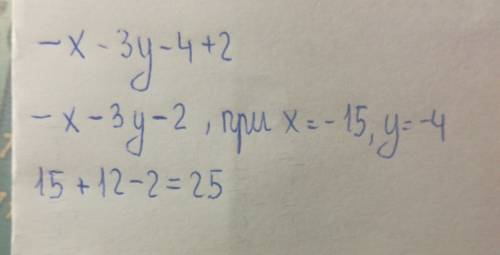 -x-3y-4+2
-x-3y-2, при x=-15, y=-4
15+12-2=25